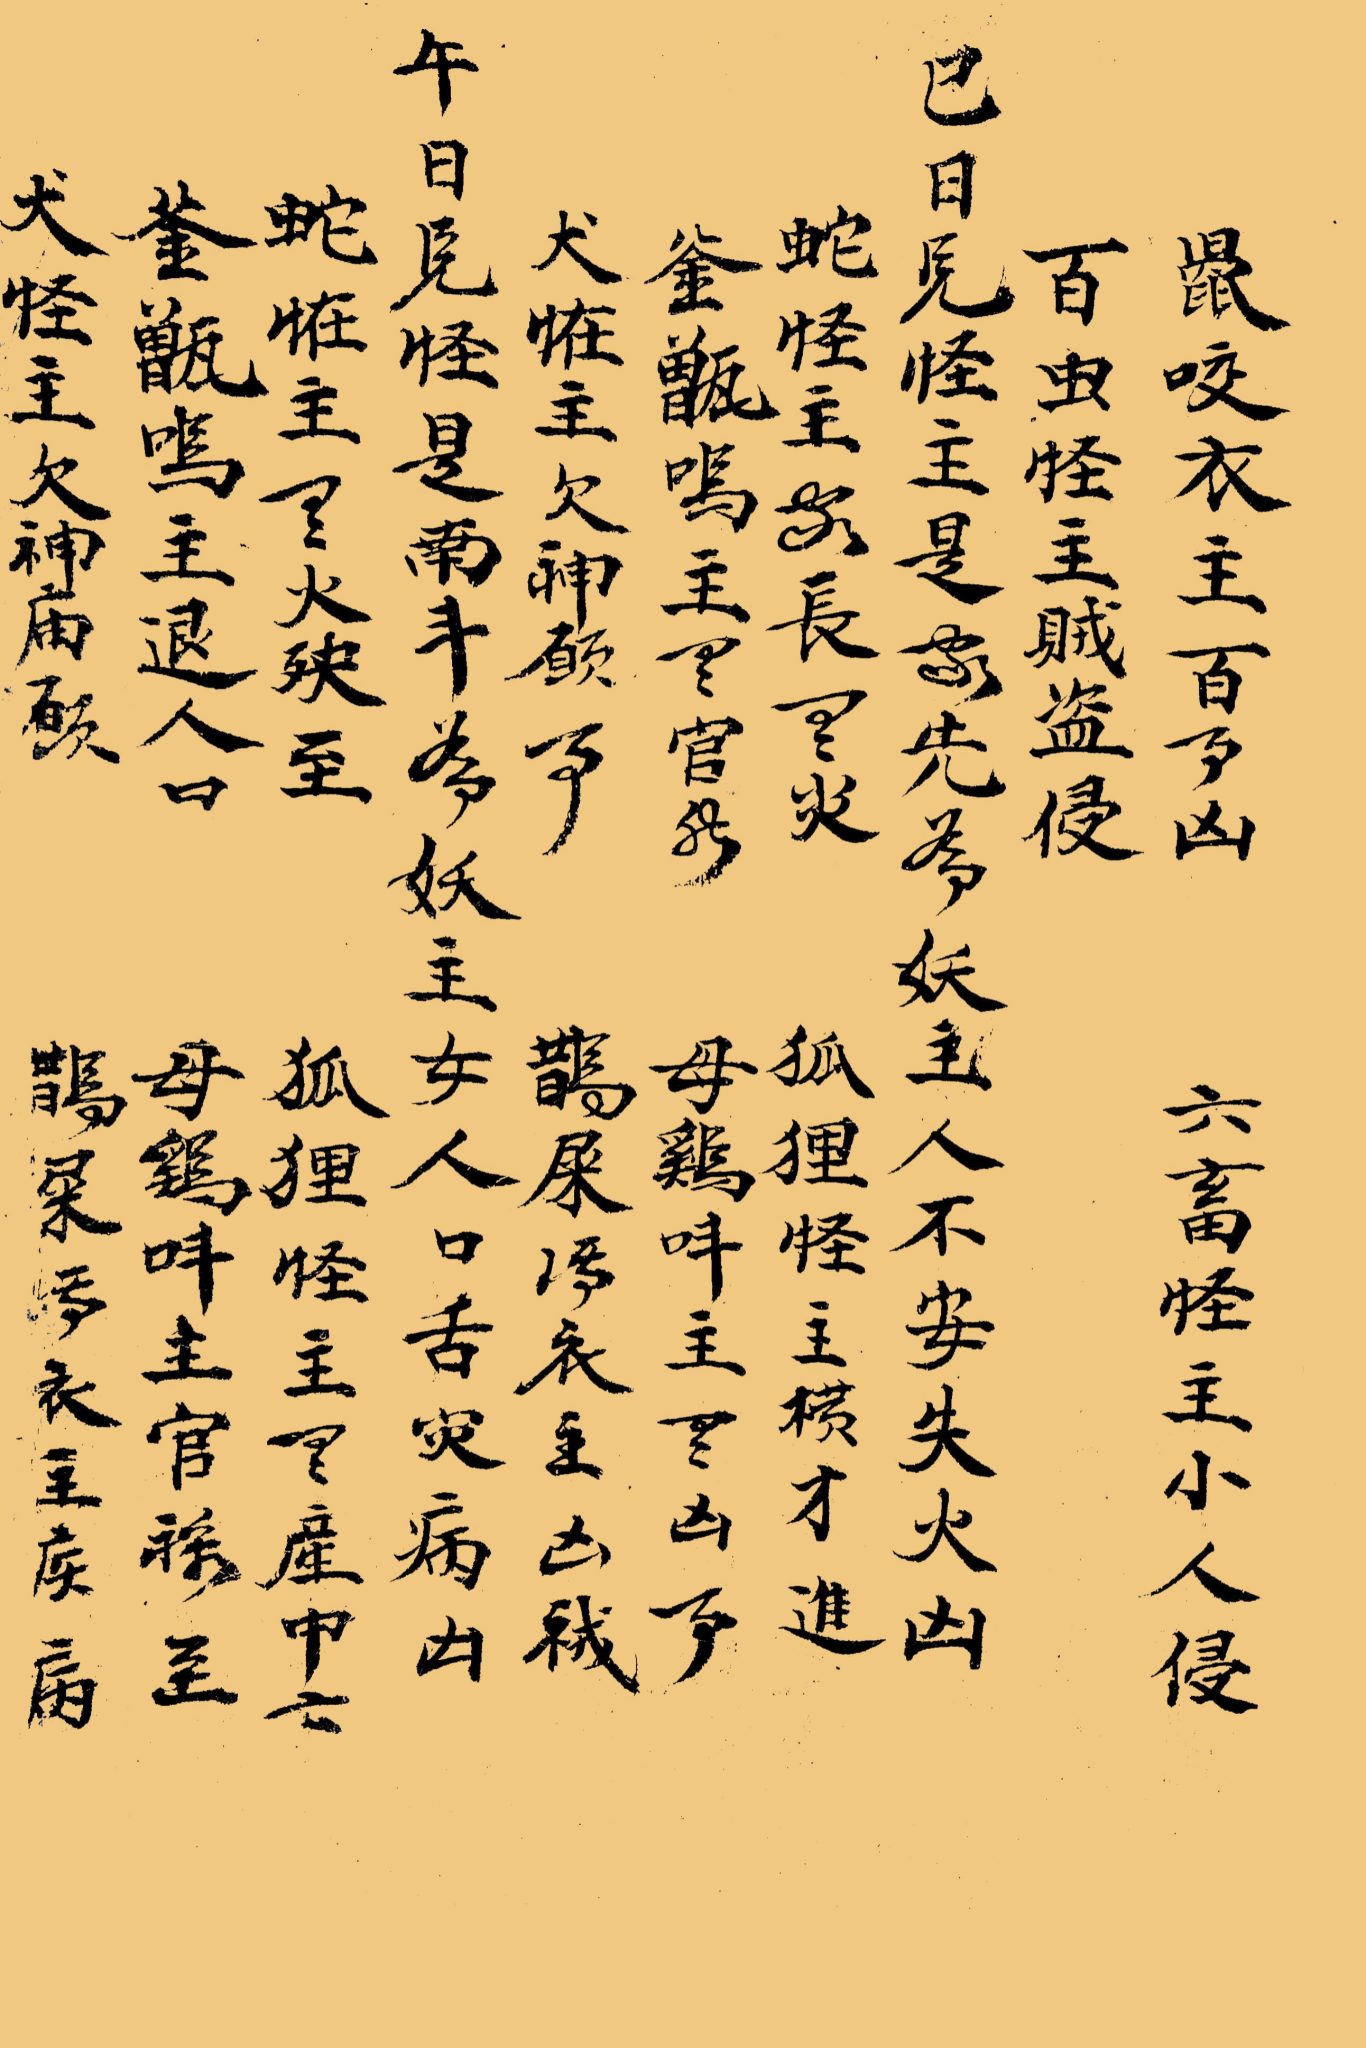 鼠咬衣主百事凶 六畜怪主小人侵
百虫怪主賊盗侵
巳日見怪主是家先爷妖主人不安失火凶
蛇怪主家長見災 狐狸怪主横才進
釜甑鳴主見官 母鷄叫主見凶事
犬怪主欠神願事 鵲屎衣主凶
午日見怪是南斗爷妖主女人口舌災病凶
蛇怪主見火殃至 狐狸怪主見產中亡
釜甑鳴主退人口 母鷄叫主官禄至
犬怪主欠神庙願 鵲屎衣主疾病